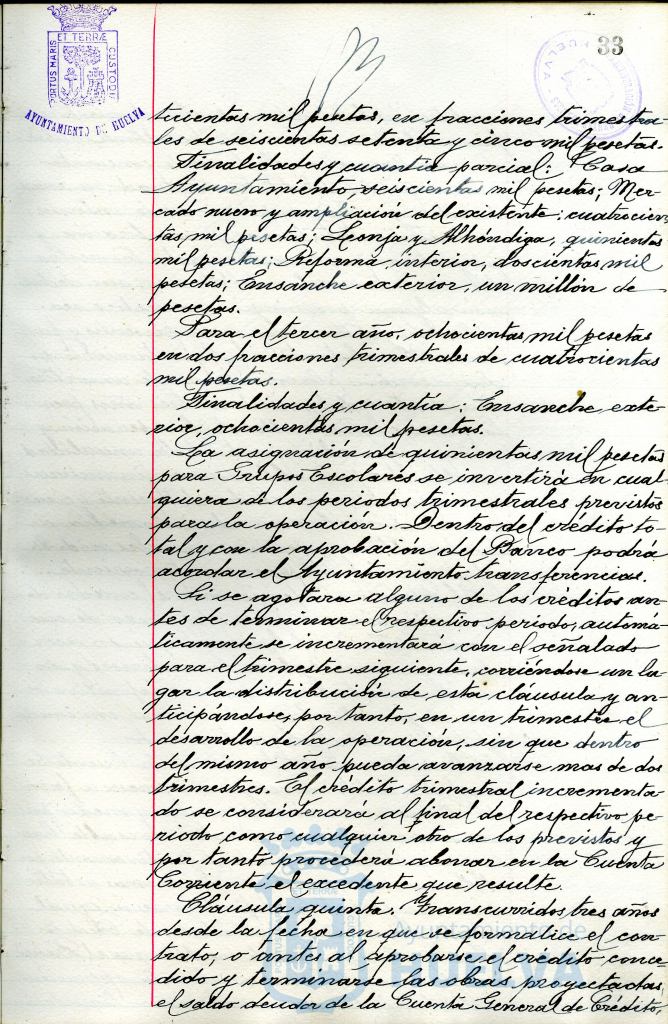 33
PORTUS MARIS ET TERRÆ CUSTODIA
AYUNTAMIENTO DE HUELVA
HUELVA
ticientas mil pesetas, en fracciones trimestra-
les de seiscientas setenta y cinco mil pesetas.
Finalidades y cuantía parcial: Casa
Ayuntamiento seiscientas mil pesetas; Mer-
cado nuevo y ampliación del existente: cuatrocien-
tas mil pesetas; Lonja y Alhóndiga, quinientas
mil pesetas; Reforma interior, doscientas mil
pesetas; Ensanche exterior, un millón de
pesetas.
Para el tercer año, ochocientas mil pesetas
en dos fracciones trimestrales de cuatrocientas
mil pesetas.
Finalidades y cuantía: Ensanche exte-
rior, ochocientas mil pesetas.
La asignación de quinientas mil pesetas
para Grupos Escolares se invertirá en cual-
quiera de los periodos trimestrales previstos
para la operación. Dentro del crédito to-
tal y con la aprobación del Banco podrá
acordar el Ayuntamiento transferencias.
Si se agotara alguno de los créditos an-
tes de terminar el respectivo periodo, automá-
ticamente se incrementará con el señalado
para el trimestre siguiente, corriéndose un lu-
gar la distribución de esta cláusula y an-
ticipándose, por tanto, en un trimestre el
desarrollo de la operación, sin que dentro
del mismo año pueda avanzarse mas de dos
trimestres. El crédito trimestral incrementa-
do se considerará al final del respectivo pe-
riodo como cualquier otro de los previstos y
por tanto procederá abonar en la Cuenta
Corriente el excedente que resulte.
Cláusula quinta. Transcurridos tres años
desde la fecha en que se formalice el con-
trato, o antes al aprobarse el crédito conce-
dido y terminarse las obras proyectadas,
el saldo deudor de la Cuenta General de Crédito,
Ayuntamiento de
HUELVA